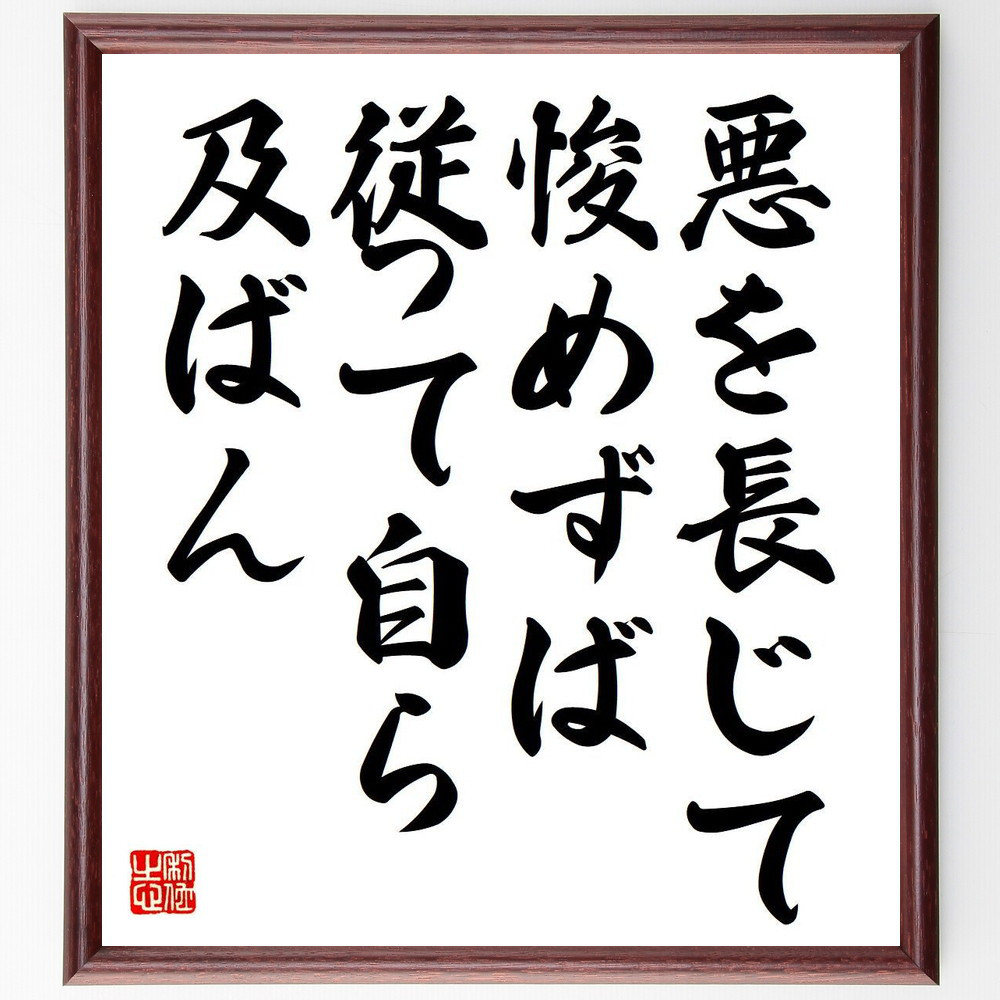 悪を長じて
悛めずば
従って自ら
及ばん